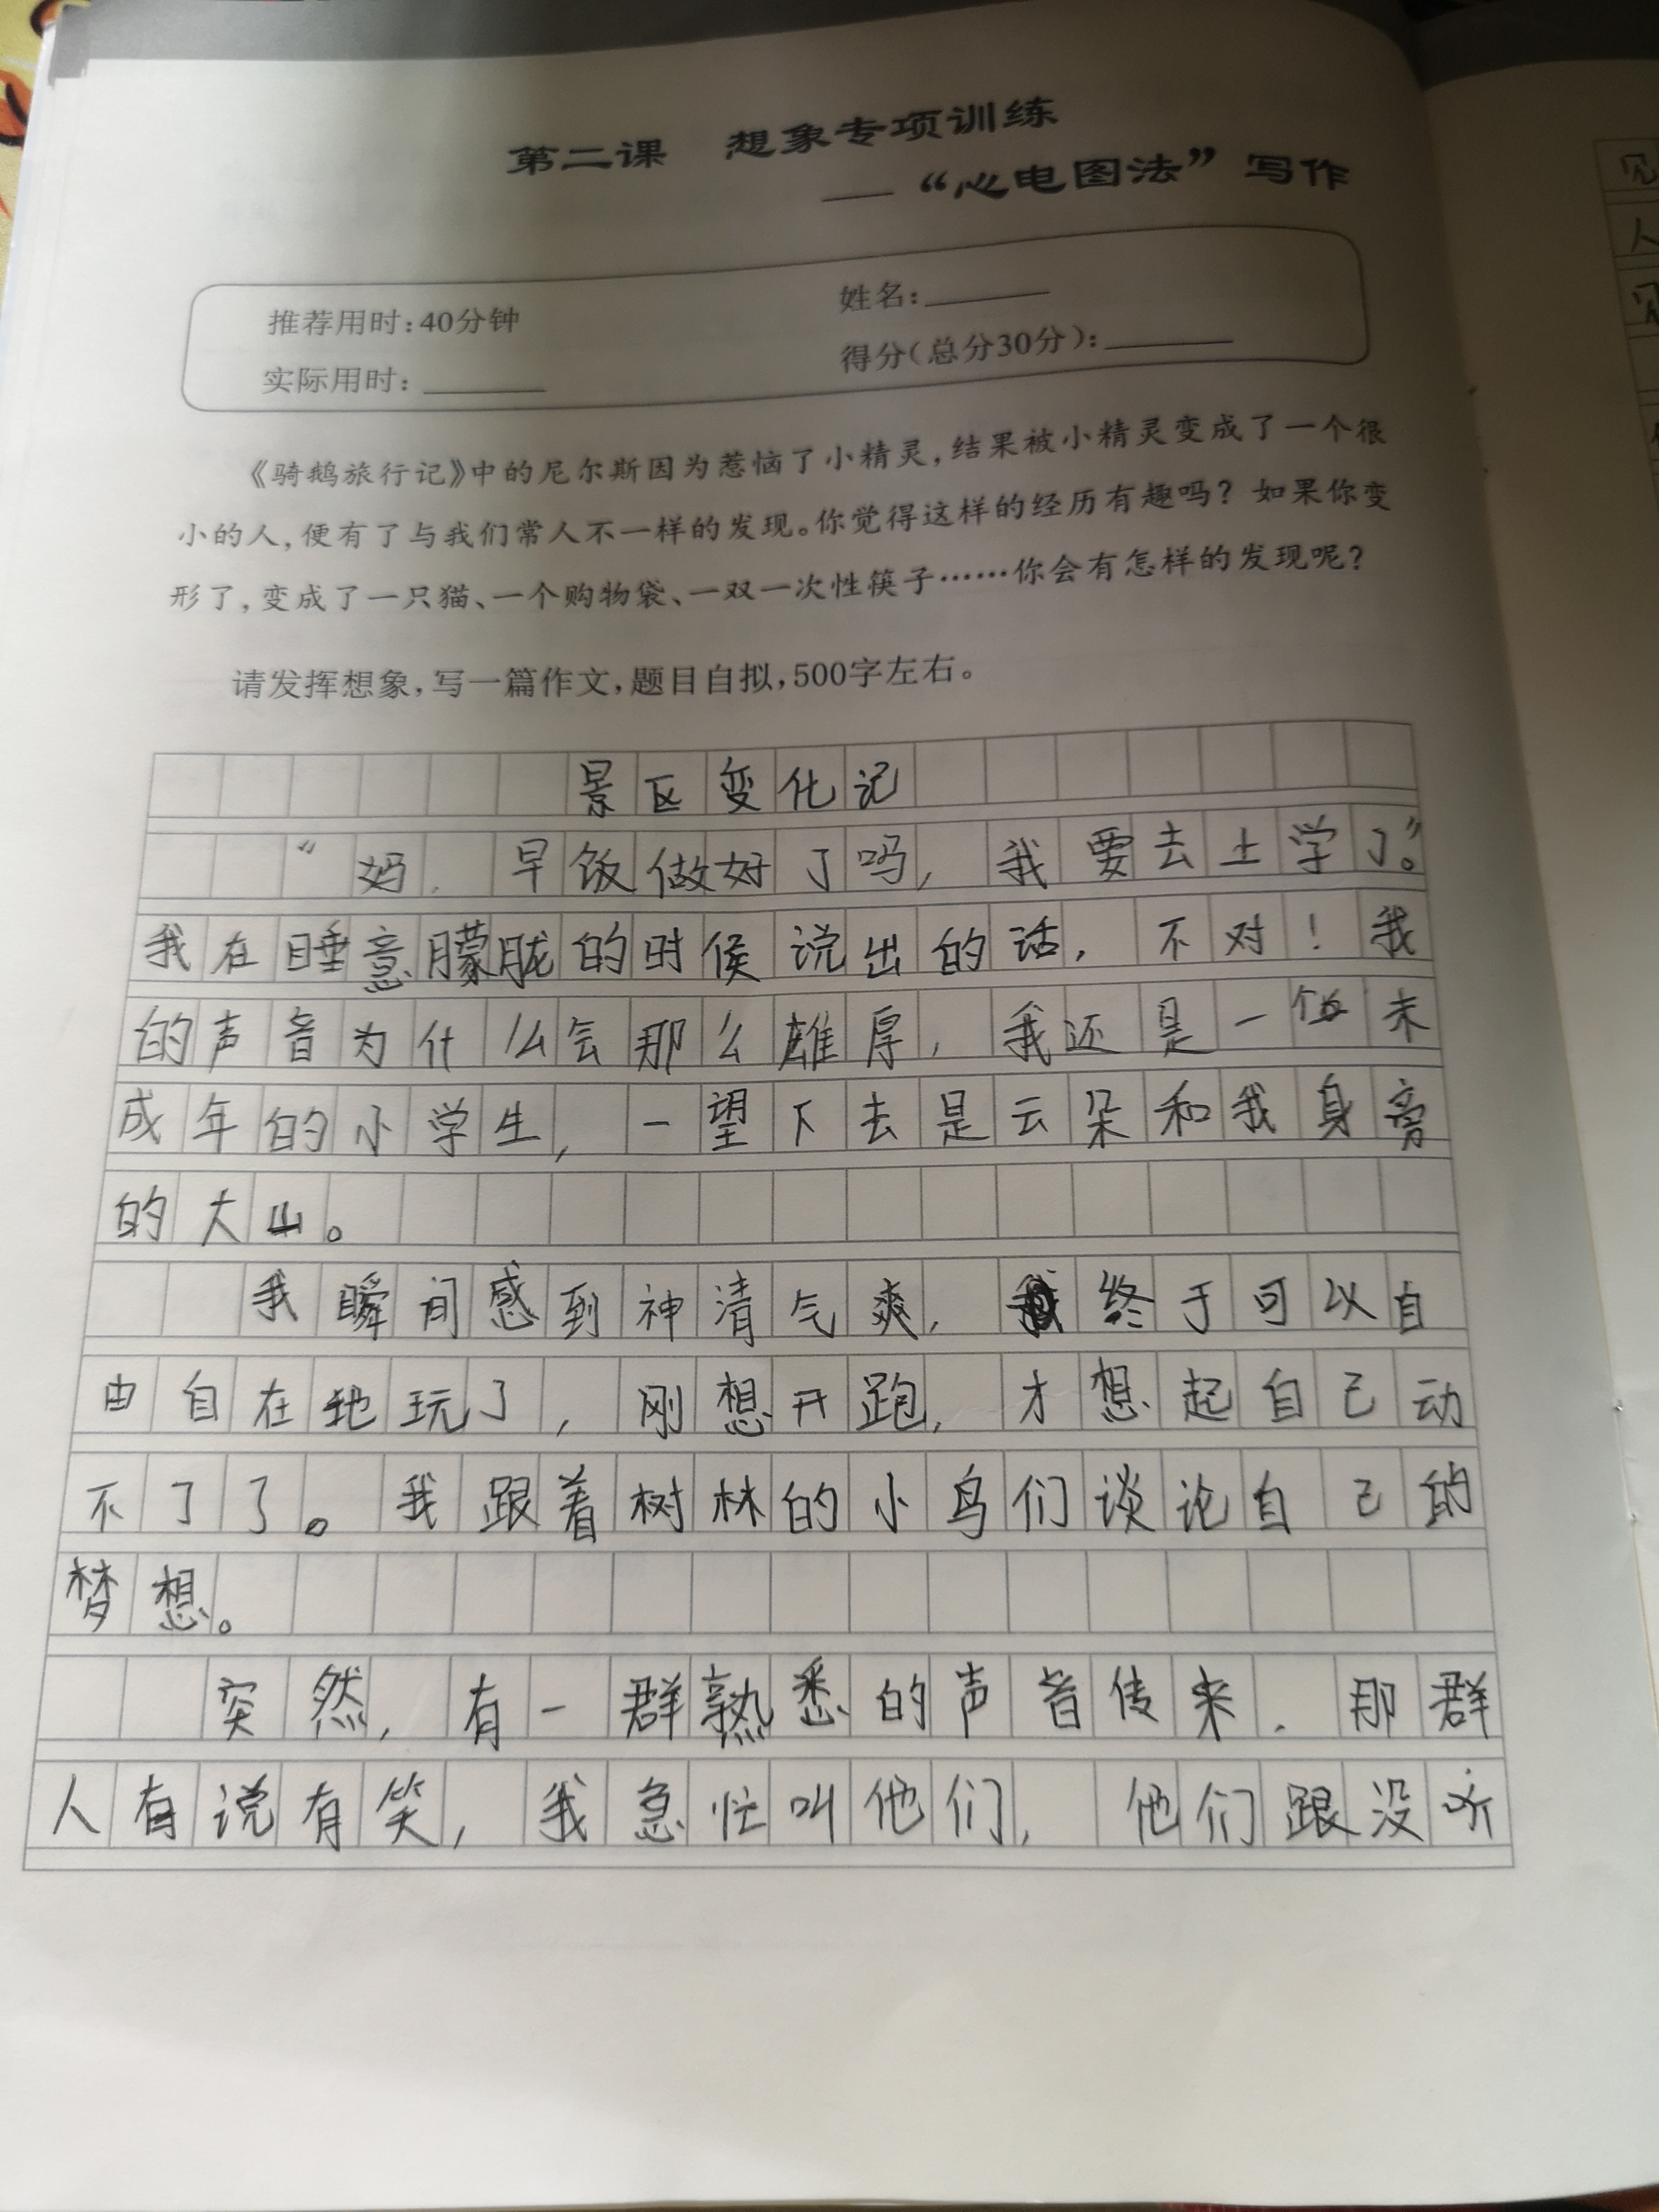 第二课 想象专项训练
——“心电图法”写作
推荐用时:40分钟
姓名:
实际用时:
得分(总分30分):
《骑鹅旅行记》中的尼尔斯因为惹恼了小精灵,结果被小精灵变成了一个很
小的人,便有了与我们常人不一样的发现。你觉得这样的经历有趣吗?如果你变
形了,变成了一只猫、一个购物袋、一双一次性筷子……你会有怎样的发现呢?
请发挥想象,写一篇作文,题目自拟,500字左右。
景区变化记
“妈,早饭做好了吗,我要去上学了。”
我在睡意朦胧的时候说出的话,不对!我
的声音为什么会那么雄厚,我还是一个未
成年的小学生,一望下去是云朵和我身旁
的大山。
我瞬间感到神清气爽,我终于可以自
由自在地玩了,刚想开跑,才想起自己动
不了了。我跟着树林的小鸟们谈论自己的
梦想。
突然,有一群熟悉的声音传来,那群
人有说有笑,我急忙叫他们,他们跟没听
见
人
见